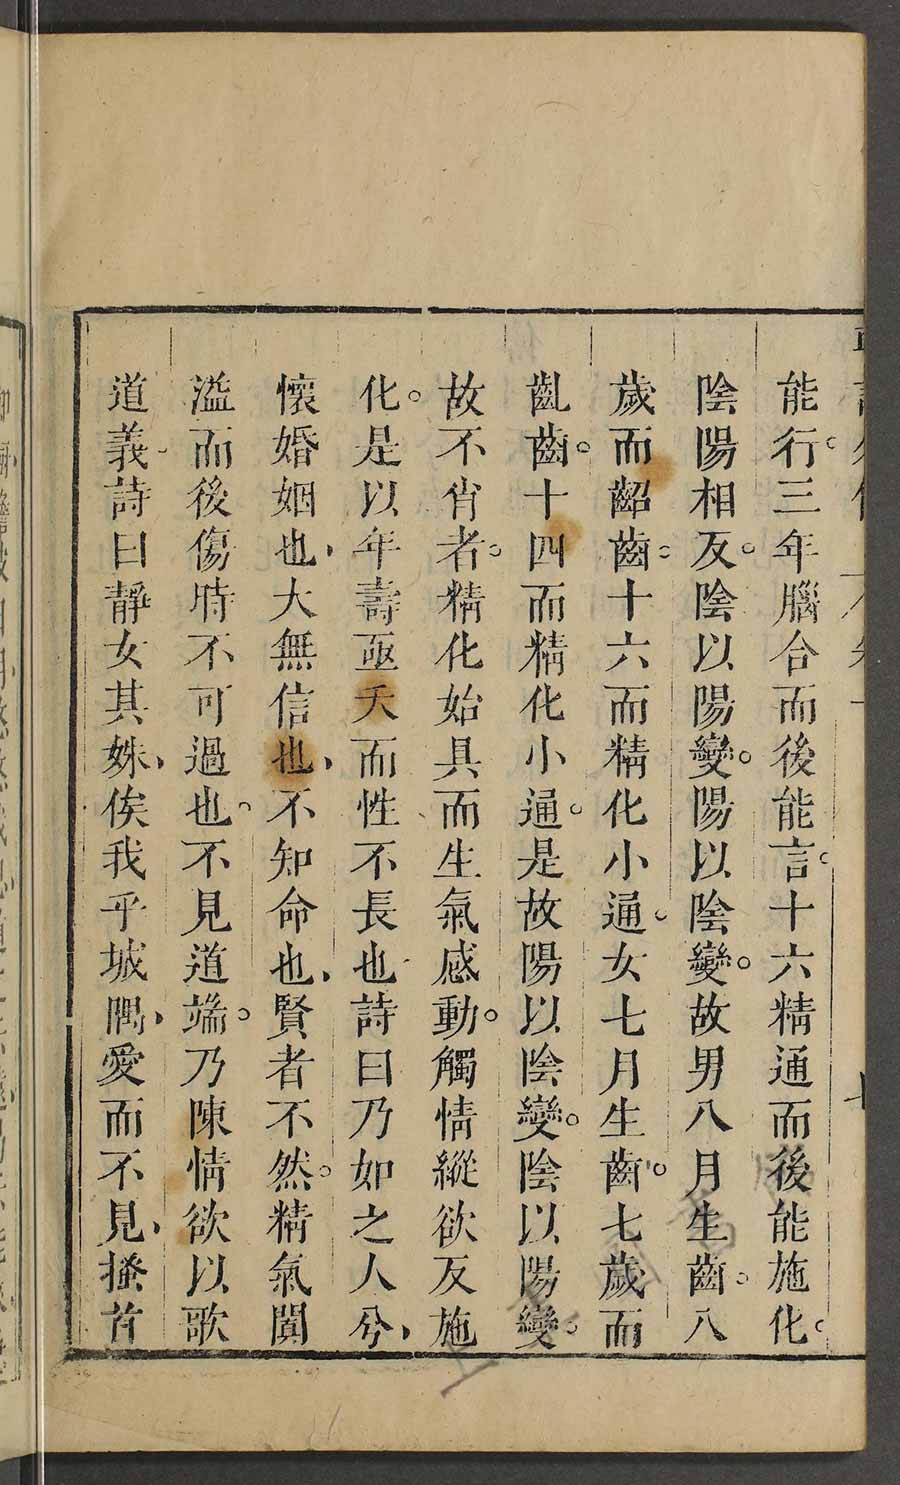 能行。三年腦合而後能言。十六精通而後能施化。
陰陽相反。陰以陽變。陽以陰變。故男八月生齒。八
歲而齠齒。十六而精化小通。女七月生齒。七歲而
齔齒。十四而精化小通。是故陽以陰變。陰以陽變。
故不肖者。精化始具而生氣感動。觸情縱欲反施
化。是以年壽亟夭而性不長也詩曰乃如之人兮，
懷婚姻也，大無信也，不知命也，賢者不然。精氣闐
溢而後傷時不可過也。不見道端。乃陳情欲以歌
道義。詩曰靜女其姝，俟我乎城隅，愛而不見，搔首